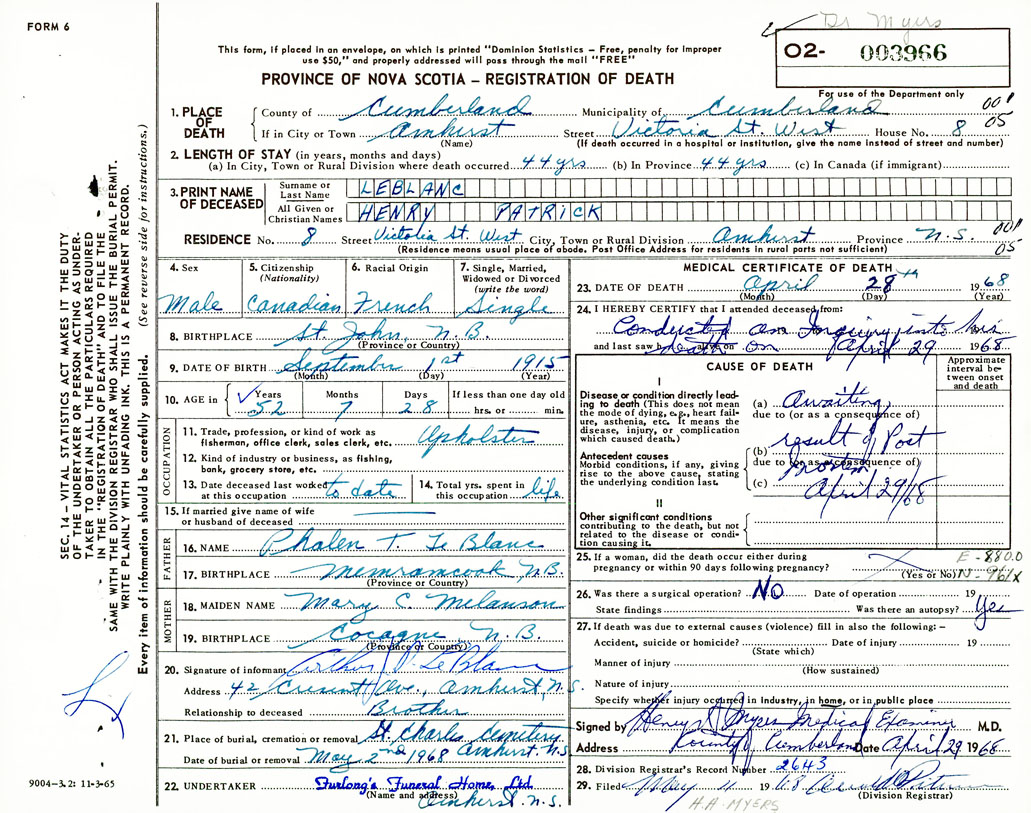 FORM 6
Dr Myers
O2- 003966
This form, if placed in an envelope, on which is printed "Dominion Statistics – Free, penalty for improper
use $50," and properly addressed will pass through the mail "FREE"
PROVINCE OF NOVA SCOTIA – REGISTRATION OF DEATH
For use of the Department only
001
05
1. PLACE OF DEATH
County of Cumberland Municipality of Cumberland
If in City or Town Amherst Street Victoria St. West House No. 8
(Name) (If death occurred in a hospital or institution, give the name instead of street and number)
2. LENGTH OF STAY (in years, months and days)
(a) In City, Town or Rural Division where death occurred 44 yrs (b) In Province 44 yrs (c) In Canada (if immigrant)
3. PRINT NAME OF DECEASED
Surname or Last Name LEBLANC
All Given or Christian Names HENRY PATRICK
RESIDENCE No. 8 Street Victoria St. West City, Town or Rural Division Amherst Province N.S.
001
05
(Residence means usual place of abode. Post Office Address for residents in rural parts not sufficient)
4. Sex
Male
5. Citizenship
(Nationality)
Canadian
6. Racial Origin
French
7. Single, Married,
Widowed or Divorced
(write the word)
Single
8. BIRTHPLACE St. John, N.B.
(Province or Country)
9. DATE OF BIRTH September 1st 1915
(Month) (Day) (Year)
10. AGE in Years 52 Months 7 Days 28 If less than one day old
hrs. or min.
OCCUPATION
11. Trade, profession, or kind of work as
fisherman, office clerk, sales clerk, etc. Upholster
12. Kind of industry or business, as fishing,
bank, grocery store, etc.
13. Date deceased last worked
at this occupation to date
14. Total yrs. spent in
this occupation life
15. If married give name of wife
or husband of deceased
FATHER
16. NAME Phalen T. Le Blanc
17. BIRTHPLACE Memramcook N.B.
(Province or Country)
MOTHER
18. MAIDEN NAME Mary C. Melanson
19. BIRTHPLACE Cocagne, N.B.
(Province or Country)
20. Signature of informant Arthur J. Le Blanc
Address 42 Cresent Ave., Amherst, N.S.
Relationship to deceased Brother
21. Place of burial, cremation or removal St. Charles Cemetery
Amherst, N.S
Date of burial or removal May 2nd 1968
22. UNDERTAKER Furlong's Funeral Home, Ltd.
(Name and address)
Amherst N.S.
MEDICAL CERTIFICATE OF DEATH
23. DATE OF DEATH April 28th 1968
(Month) (Day) (Year)
24. I HEREBY CERTIFY that I attended deceased from:
Conducted an Inquiry into his
and last saw h alive on 19
death on April 29 1968
CAUSE OF DEATH
Approximate
interval be-
tween onset
and death
I
Disease or condition directly lead-
ing to death (This does not mean
the mode of dying, e.g., heart fail-
ure, asthenia, etc. It means the
disease, injury, or complication
which caused death.)
(a) Awaiting
due to (or as a consequence of)
Antecedent causes
Morbid conditions, if any, giving
rise to the above cause, stating
the underlying condition last.
(b) result of Post
due to (or as a consequence of)
Mortem
(c) April 29/68
II
Other significant conditions
contributing to the death, but not
related to the disease or condi-
tion causing it.
25. If a woman, did the death occur either during
pregnancy or within 90 days following pregnancy?
(Yes or No)
E-880.0
N-961X
26. Was there a surgical operation? No Date of operation 19
State findings Was there an autopsy? Yes
27. If death was due to external causes (violence) fill in also the following:–
Accident, suicide or homicide? Date of injury 19
(State which)
Manner of injury
(How sustained)
Nature of injury
Specify whether injury occurred in industry, in home, or in public place
Signed by Medical Examiner M.D.
Address County of Cumberland Date April 29 1968
28. Division Registrar's Record Number 2643
29. Filed May 19
(Division Registrar)
H.A. MYERS
SEC. 14 – VITAL STATISTICS ACT MAKES IT THE DUTY
OF THE UNDERTAKER OR PERSON ACTING AS UNDER-
TAKER TO OBTAIN ALL THE PARTICULARS REQUIRED
IN THE "REGISTRATION OF DEATH" AND TO FILE THE
SAME WITH THE DIVISION REGISTRAR WHO SHALL ISSUE THE BURIAL PERMIT.
WRITE PLAINLY WITH UNFADING INK. THIS IS A PERMANENT RECORD.
Every item of information should be carefully supplied. (See reverse side for instructions.)
9004–3.2: 11-3-65